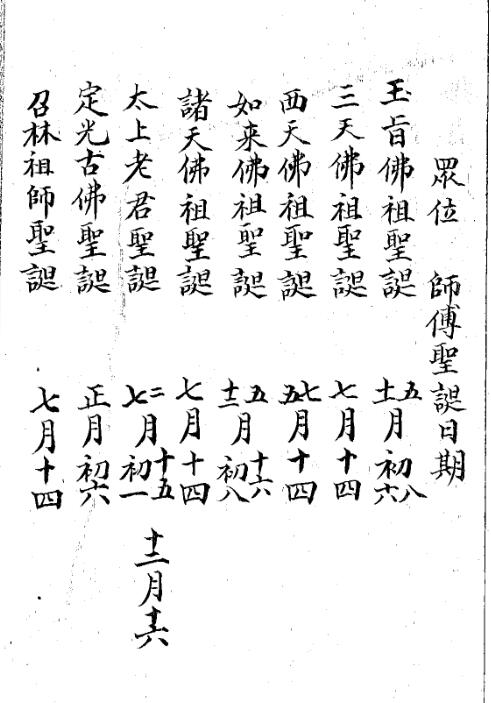 眾位　師傅聖誕日期
玉旨佛祖聖誕　五月初八　十一月初六
三天佛祖聖誕　七月十四
西天佛祖聖誕　七月十四　五月十四
如来佛祖聖誕　五月十六　十二月初八
諸天佛祖聖誕　七月十四
太上老君聖誕　二月十五　七月初一　十二月十六
定光古佛聖誕　正月初六
召林祖師聖誕　七月十四